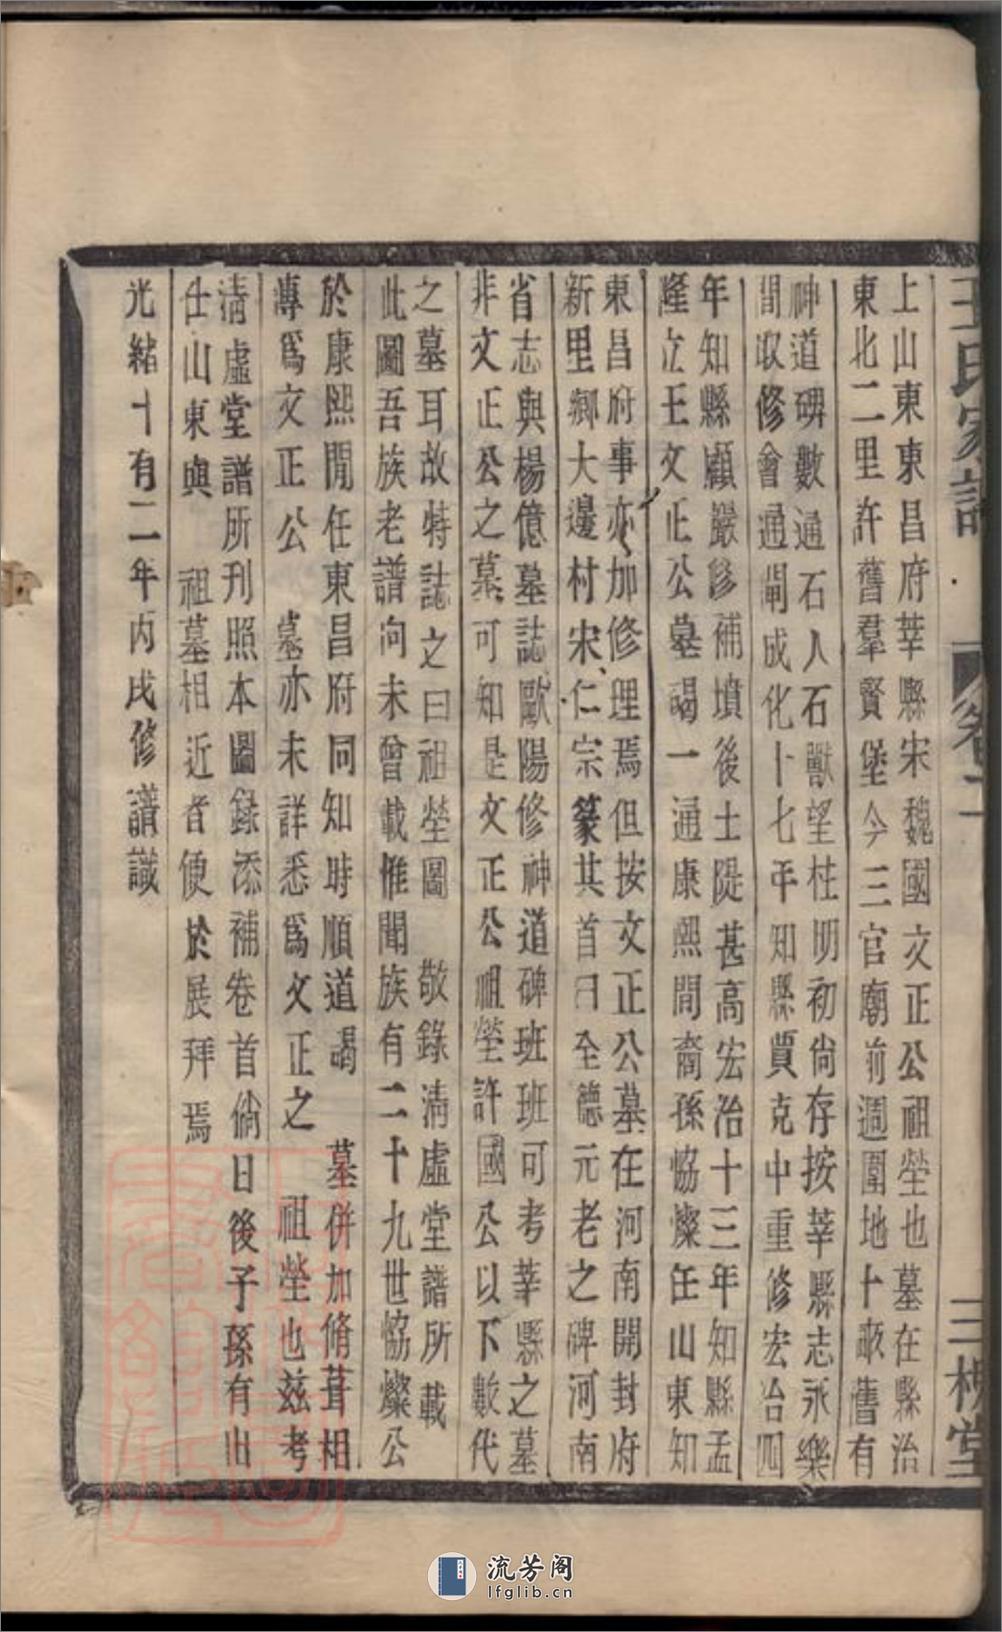 王氏家譜
卷一
三槐堂
上山東東昌府莘縣宋魏國文正公祖塋也墓在縣治
東北二里許舊羣賢堡今三官廟前週圍地十畝舊有
神道碑數通石人石獸望柱明初尚存按莘縣志永樂
間改修會通閘成化十七年知縣賈克中重修宏治四
年知縣顧巖修補墳後土隄甚高宏治十三年知縣孟
隆立王文正公墓碣一通康熙間裔孫恊燦任山東知
東昌府事亦加修理焉但按文正公墓在河南開封府
新里鄉大邊村宋仁宗篆其首曰全德元老之碑河南
省志與楊億墓誌歐陽修神道碑班班可考莘縣之墓
非文正公之墓可知是文正公祖塋許國公以下數代
之墓耳故特誌之曰祖塋圖 敬錄清虛堂譜所載
此圖吾族老譜向未曾載惟聞族有二十九世恊燦公
於康熙間任東昌府同知時順道謁 墓併加脩葺相
傳爲文正公 墓亦未詳悉爲文正之 祖塋也茲考
清虛堂譜所刊照本圖録添補卷首倘日後子孫有出
仕山東與 祖墓相近者便於展拜焉
光緒十有二年丙戌修譜識
流芳阁
lfglib.cn